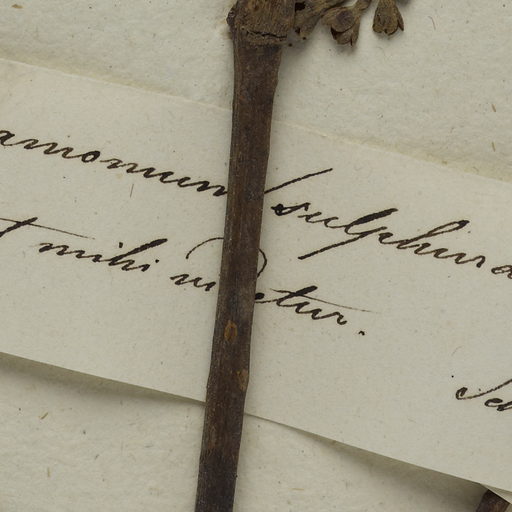 amomum sulphura
t mihi videtur.
Sch